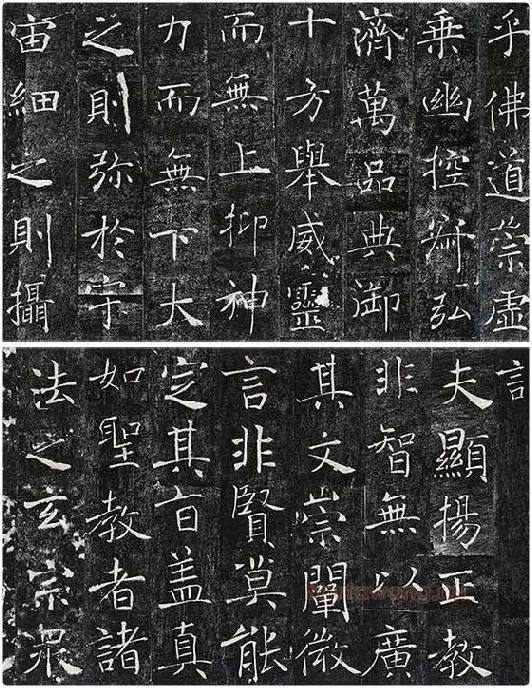 乎佛道崇虛
乘幽控寂弘
濟萬品典御
十方舉威靈
而無上抑神
力而無下大
之則弥於宇
宙細之則攝
言
夫顯揚正教
非智無以廣
其文崇闡微
言非賢莫能
定其旨盖真
如聖教者諸
法之玄宗眾